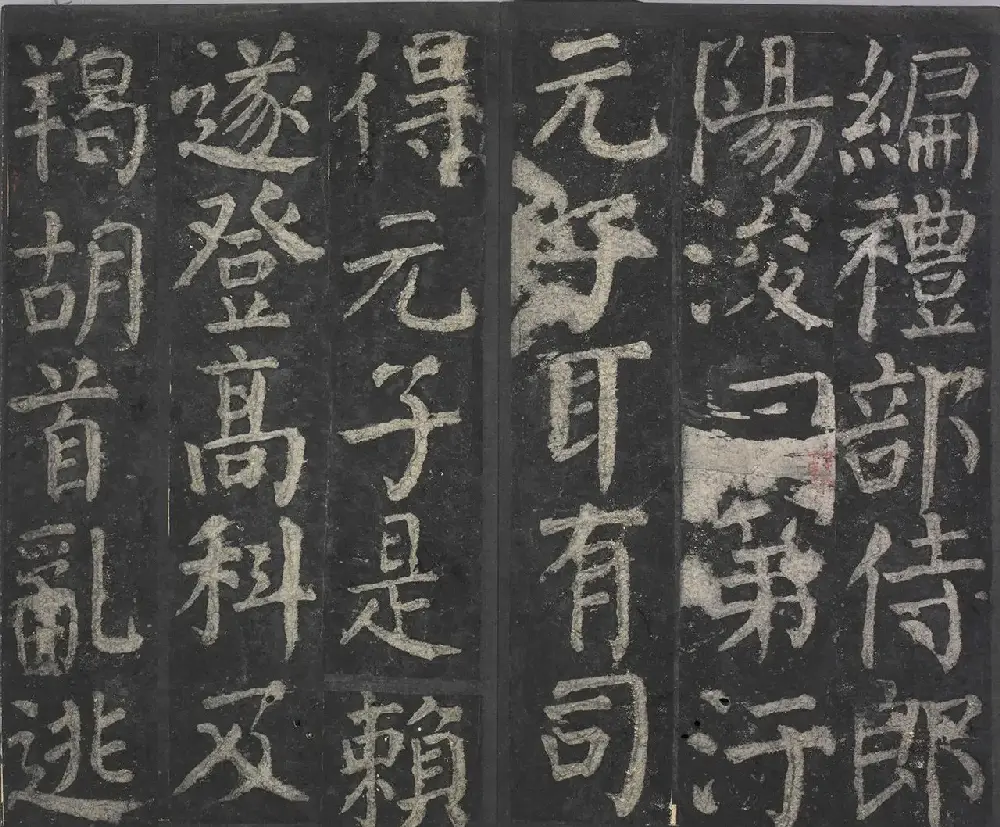 編禮部侍郎
陽浚曰第汙
元子耳有司
得元子是賴
遂登高科及
羯胡首亂逃